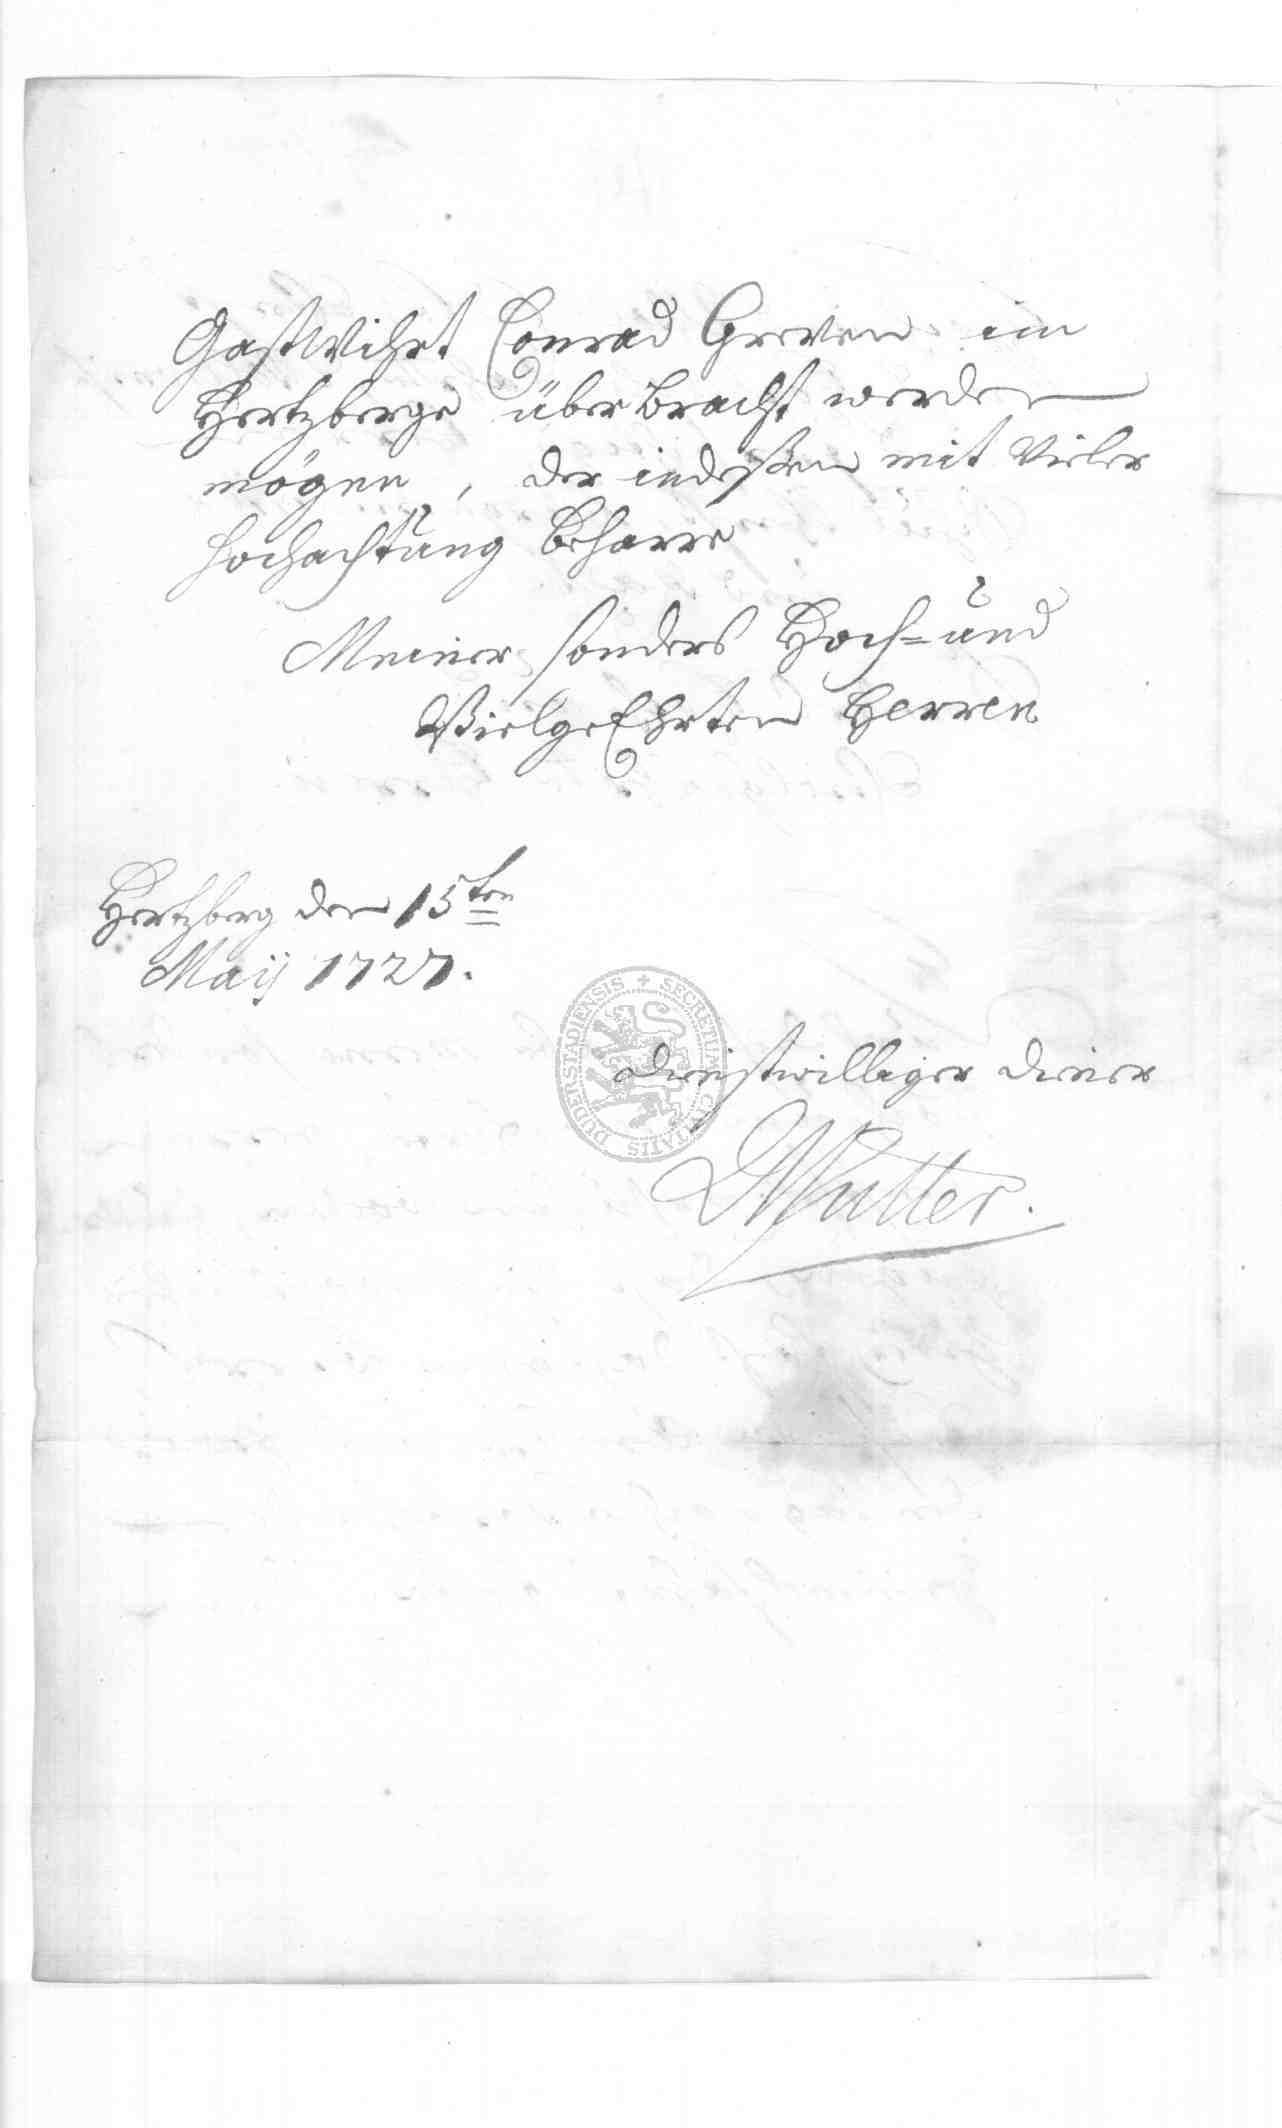 GastWihrt Conrad Greven im
Hertzberge überbracht werden
mögen, der indeßen mit Vieler
hochachtung beharre
Meiner sonders Hoch= und
VielgeEhrten Herren
Hertzberg den 15ten
Maij 1727.
SECRETUM CIVITATIS DUDERSTADIENSIS
dienstwilliger diener